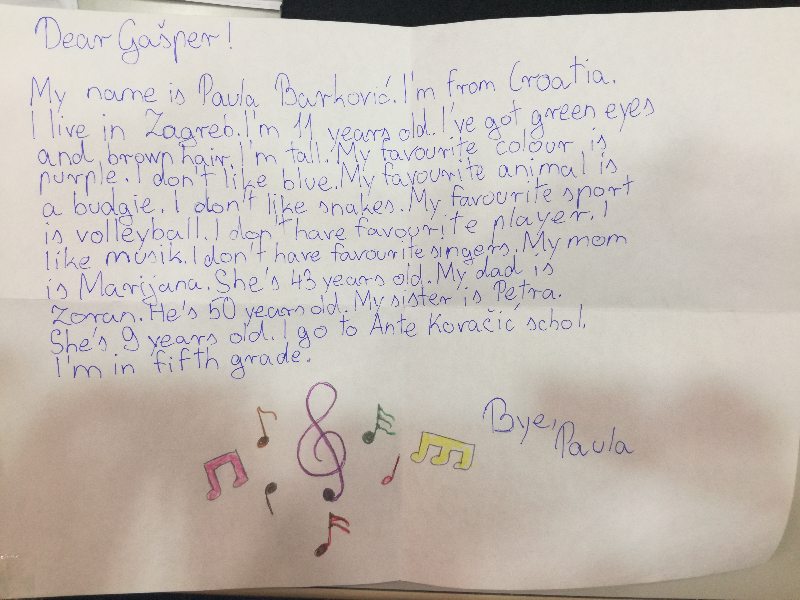 Dear Gašper!
My name is Paula Barković. I'm from Croatia.
I live in Zagreb. I'm 11 years old. I've got green eyes
and brown hair. I'm tall. My favourite colour is
purple. I don't like blue. My favourite animal is
a budgie. I don't like snakes. My favourite sport
is volleyball. I don't have favourite player. I
like musik. I don't have favourite singers. My mom
is Marijana. She's 43 years old. My dad is
Zoran. He's 50 years old. My sister is Petra.
She's 9 years old. I go to Ante Kovačić schol.
I'm in fifth grade.
Bye,
Paula